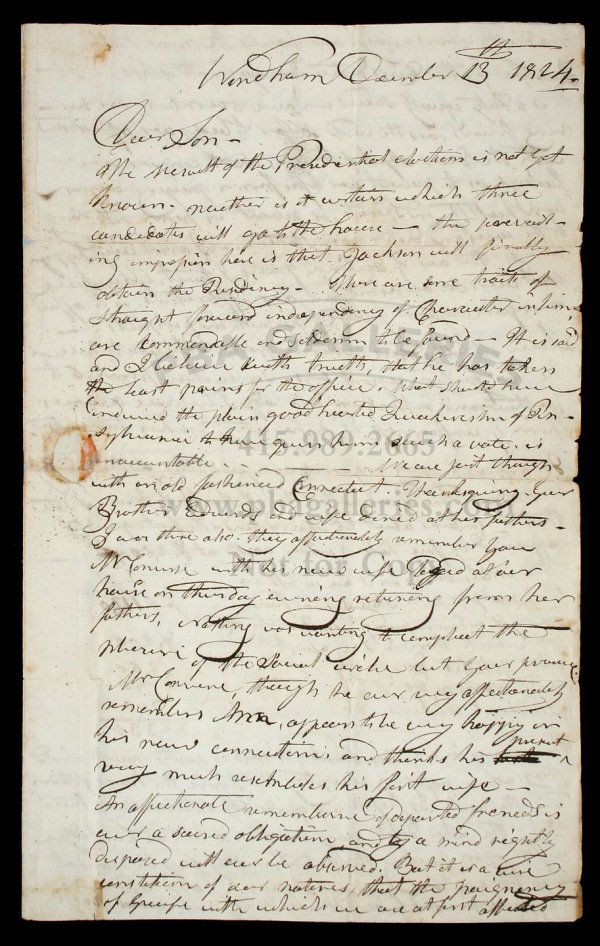 Windham December 13th 1824.
Dear Son -
The result of the Presidential elections is not yet
known - neither is it certain which three
candidates will go to the house - the prevail-
ing impression here is that Jackson will finally
obtain the Presidency - There are some traits of
straight forward independency of Character in him
are commendable and seldom to be found - It is said
and I believe with truth, that he has taken
the least pains for the office. What should have
induced the plain good hearted Quakerism of Pen-
sylvania to have given him such a vote is
unaccountable - We are just through
with an old fashioned Connecticut Thanksgiving. Your
Brother Edward and wife dined at her fathers -
I was there also - they affectionately remember you
Mr Converse with his new wife lodged at our
house on thursday evening returning from her
fathers, nothing was wanting to compleat the
of the social circle but your presence
Mr Converse, though he our very affectionately
remembers Ann, appears to be very happy in
his new connections and thinks his present
very much resembles his first wife -
An affectionate remembrance of departed friends is
ever a sacred obligation and by a mind rightly
disposed will ever be observed. But it is a wise
constitution of our natures that the poignancy
of Grief with which we are at first affected
PBA GALLERIES
415.989.2665
www.pbagalleries.com
Not for Copy